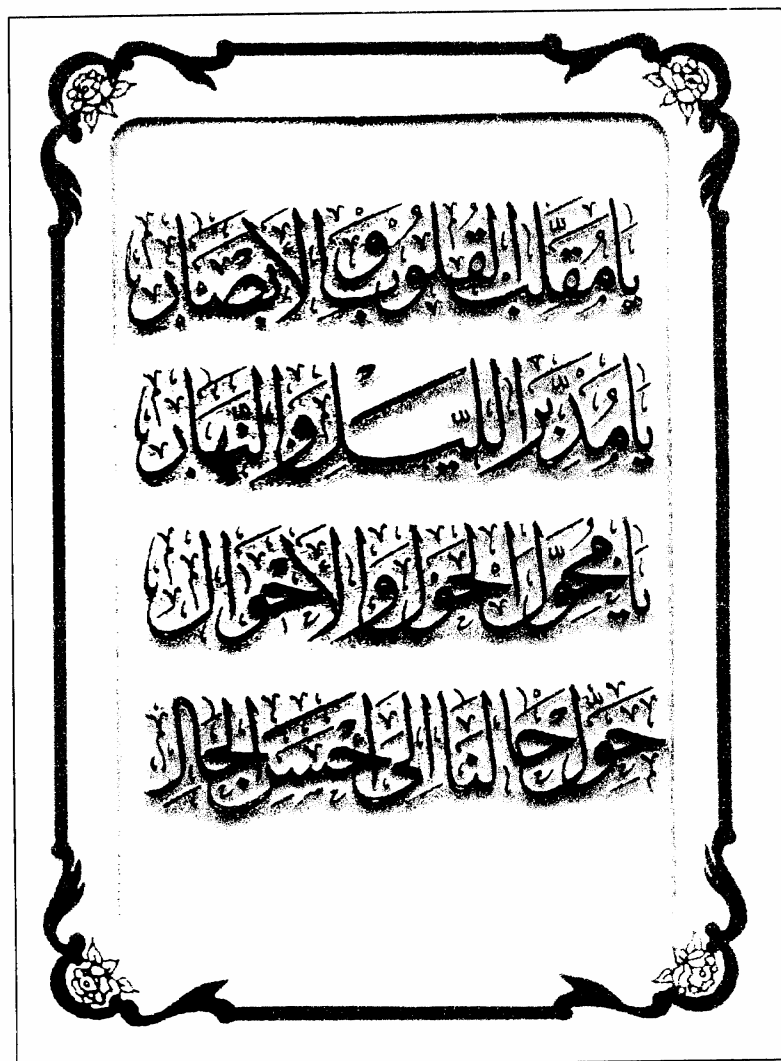 یا مُقَلِّبَ القُلُوبِ وَ الاَبصَارِ
یا مُدَبِّرَ اللَّیلِ وَ النَّهَارِ
یا مُحَوِّلَ الحَولِ وَ الاَحوَالِ
حَوِّل حَالَنَا اِلی اَحسَنِ الحَالِ